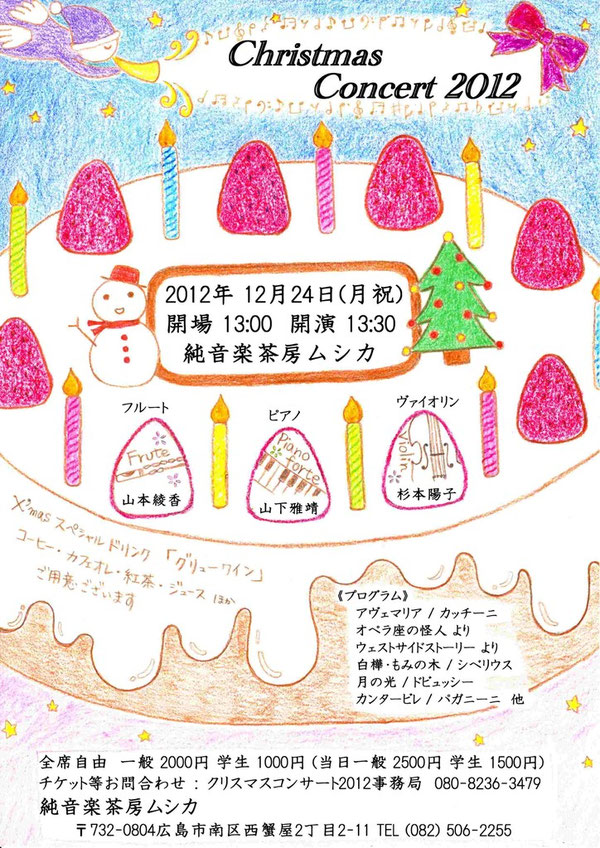 Christmas
Concert 2012
2012年 12月24日(月祝)
開場 13:00 開演 13:30
純音楽茶房ムシカ
フルート
ピアノ
ヴァイオリン
Frute
Piano
forte
Violin
山本綾香
山下雅靖
杉本陽子
X'mas スペシャルドリンク 「グリューワイン」
コーヒー・カフェオレ・紅茶・ジュース ほか
ご用意ございます
《プログラム》
アヴェマリア / カッチーニ
オペラ座の怪人 より
ウェストサイドストーリー より
白樺・もみの木 / シベリウス
月の光 / ドビュッシー
カンタービレ / パガニーニ 他
全席自由 一般 2000円 学生 1000円 (当日一般 2500円 学生 1500円)
チケット等お問合わせ : クリスマスコンサート2012事務局 080-8236-3479
純音楽茶房ムシカ
〒732-0804広島市南区西蟹屋2丁目2-11 TEL (082) 506-2255